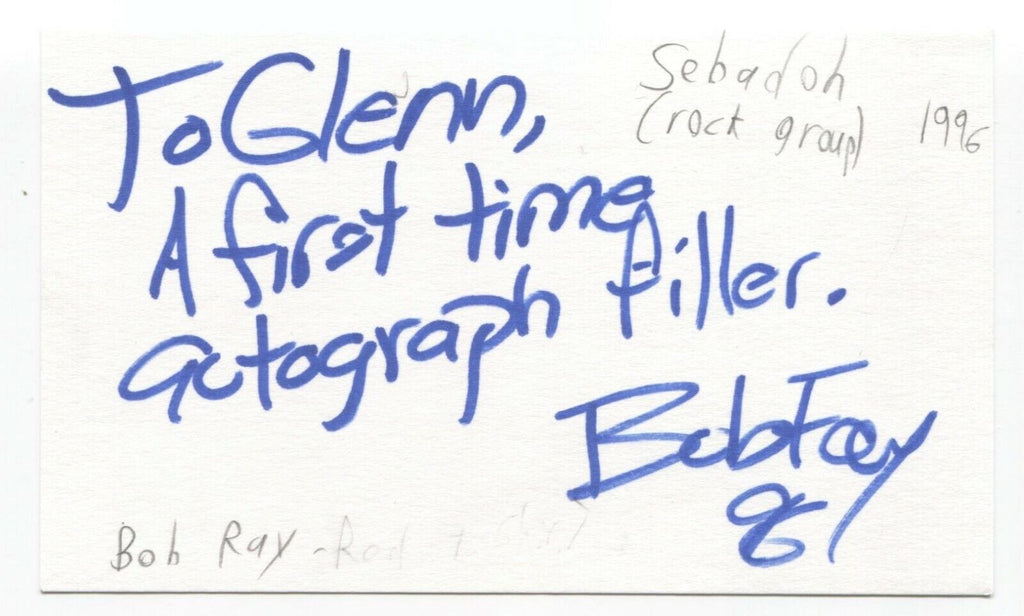 To Glenn,
Sebadoh
(rock group) 1996
A first time
autograph filler.
Bob Fay
96
Bob Ray -